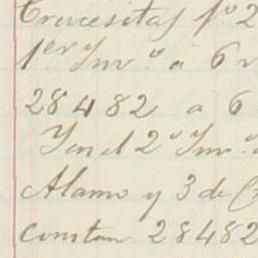 Crucesitas fº 2
1er Ynvº á 6 r
28482 a 6
Yen el 2º Ynvº
Alamo y 3 de C
constan 28482